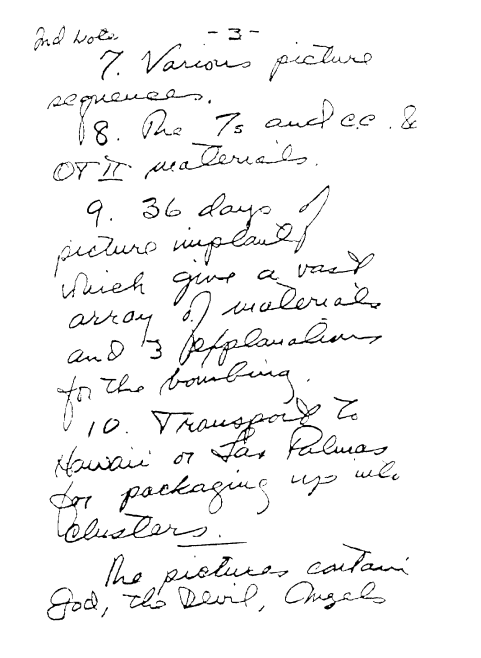 2nd Note - 3 -
7. Various picture
sequences.
8. The 7s and c.c. &
OT II materials.
9. 36 days of
picture implant
which give a vast
array of materials
and 3 explanations
for the bombing.
10. Transport to
Hawaii or Las Palmas
for packaging up into
clusters.
The pictures contain
God, the Devil, Angels